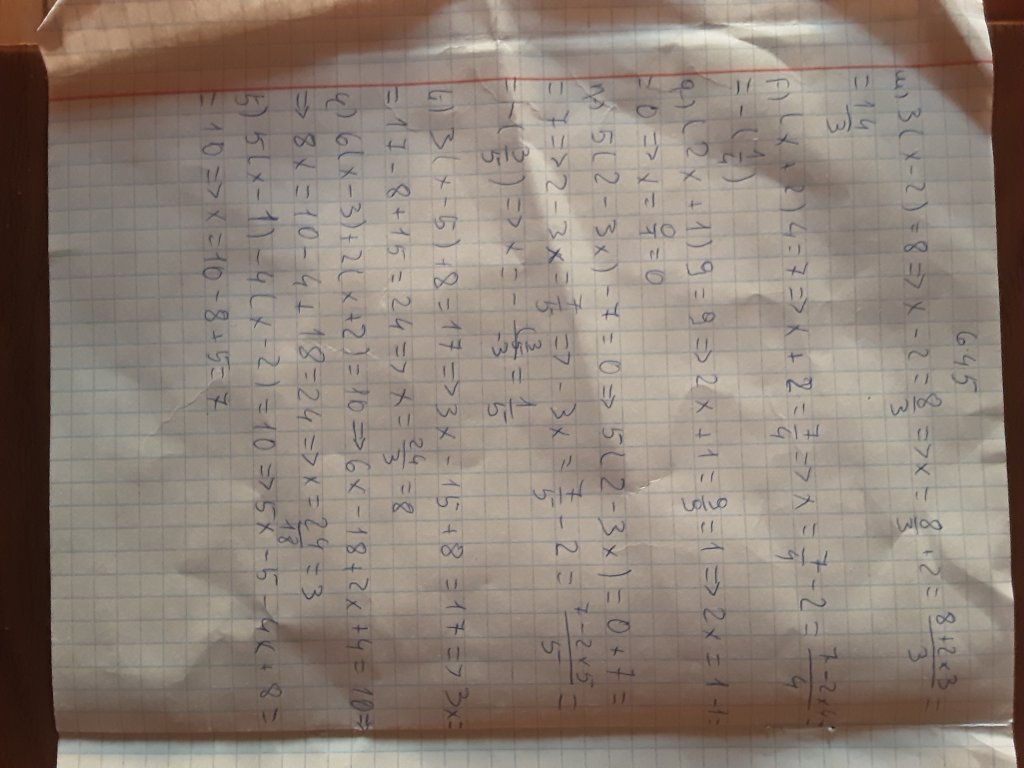 645
ա) 3(x-2)=8⇒x-2=8/3⇒x=8/3+2=(8+2×3)/3=
=14/3
բ) (x+2)4=7⇒x+2=7/4⇒x=7/4-2=(7-2×4)/4=
=-(1/4)
գ) (2x+1)9=9⇒2x+1=9/9=1⇒2x=1-1=
=0⇒x=0/1=0
դ) 5(2-3x)-7=0⇒5(2-3x)=0+7=
=7⇒2-3x=7/5⇒-3x=7/5-2=(7-2×5)/5=
=-(3/5)⇒x=-(3/5)/-3=1/5
3(x-5)+8=17⇒3x-15+8=17⇒3x=
=17-8+15=24⇒x=24/3=8
6(x-3)+2(x+2)=10⇒6x-18+2x+4=10⇒
⇒8x=10-4+18=24⇒x=24/18=3
5) 5(x-1)-4(x-2)=10⇒5x-5-4x+8=
=10⇒x=10-8+5=7